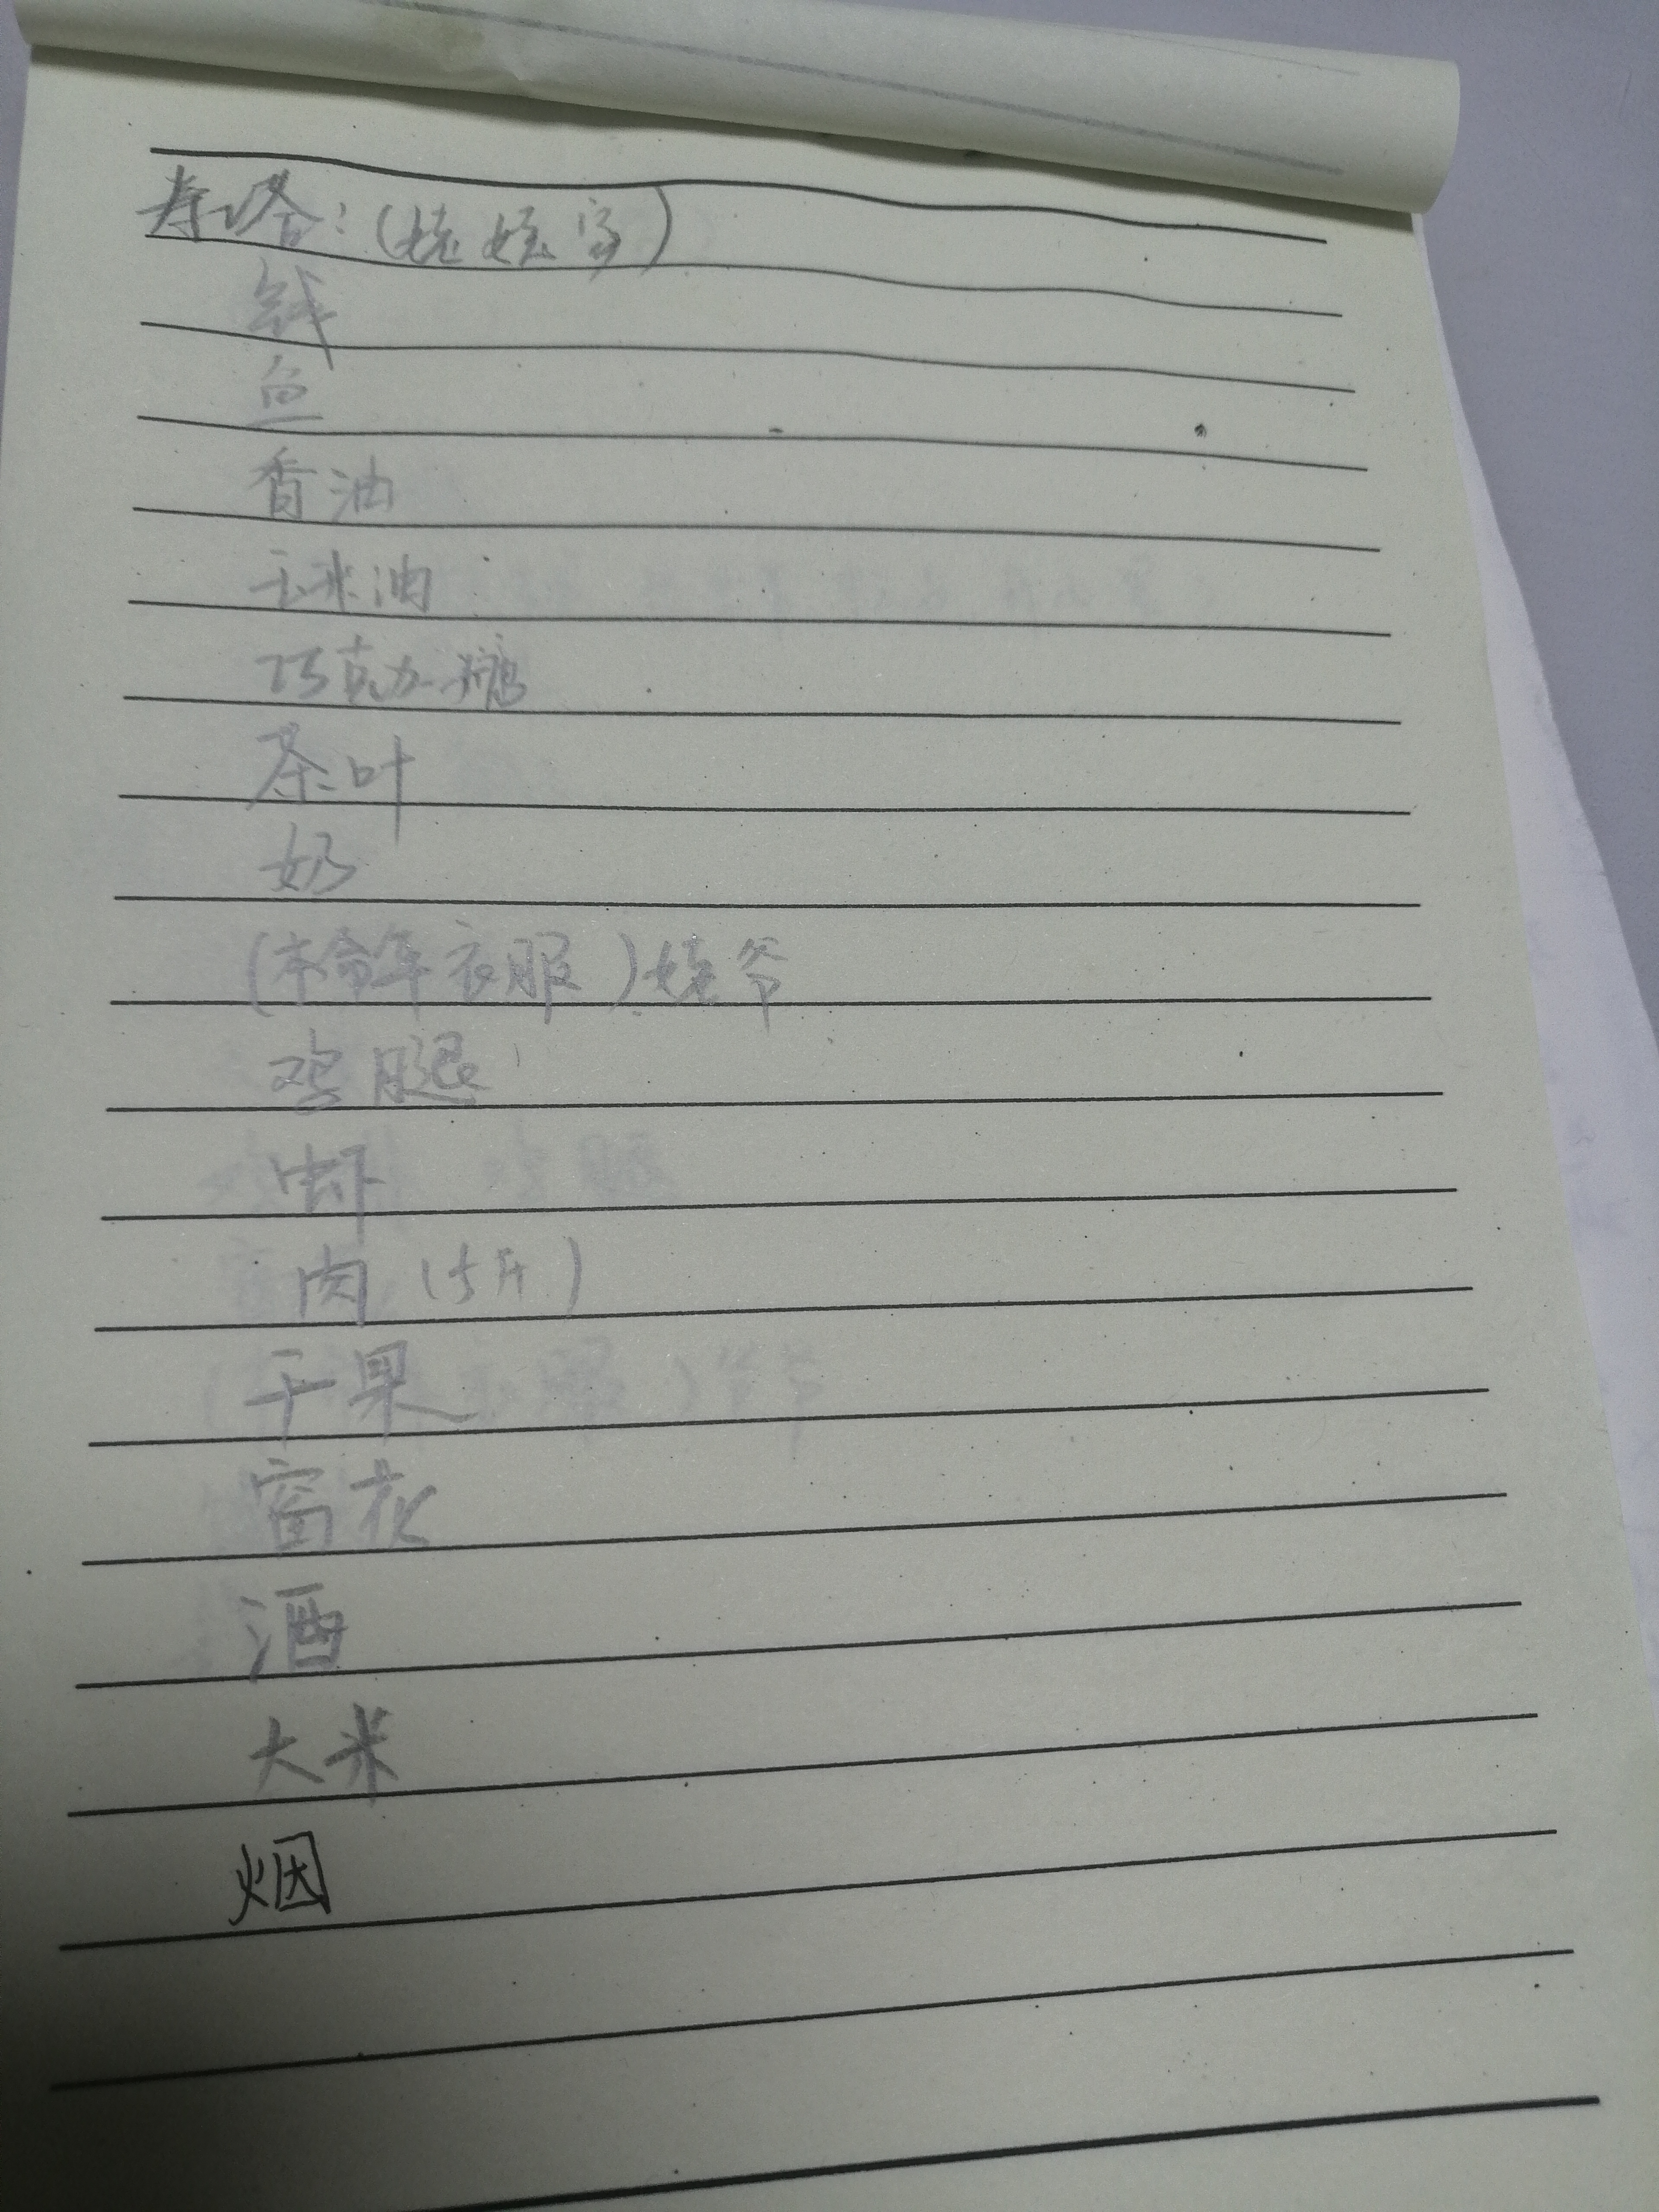 寿塔：（姥姥家）
钱
鱼
香油
玉米油
巧克力糖
茶叶
奶
（本命年衣服）姥爷
鸡腿
虾
肉（5斤）
干果
窗花
酒
大米
烟